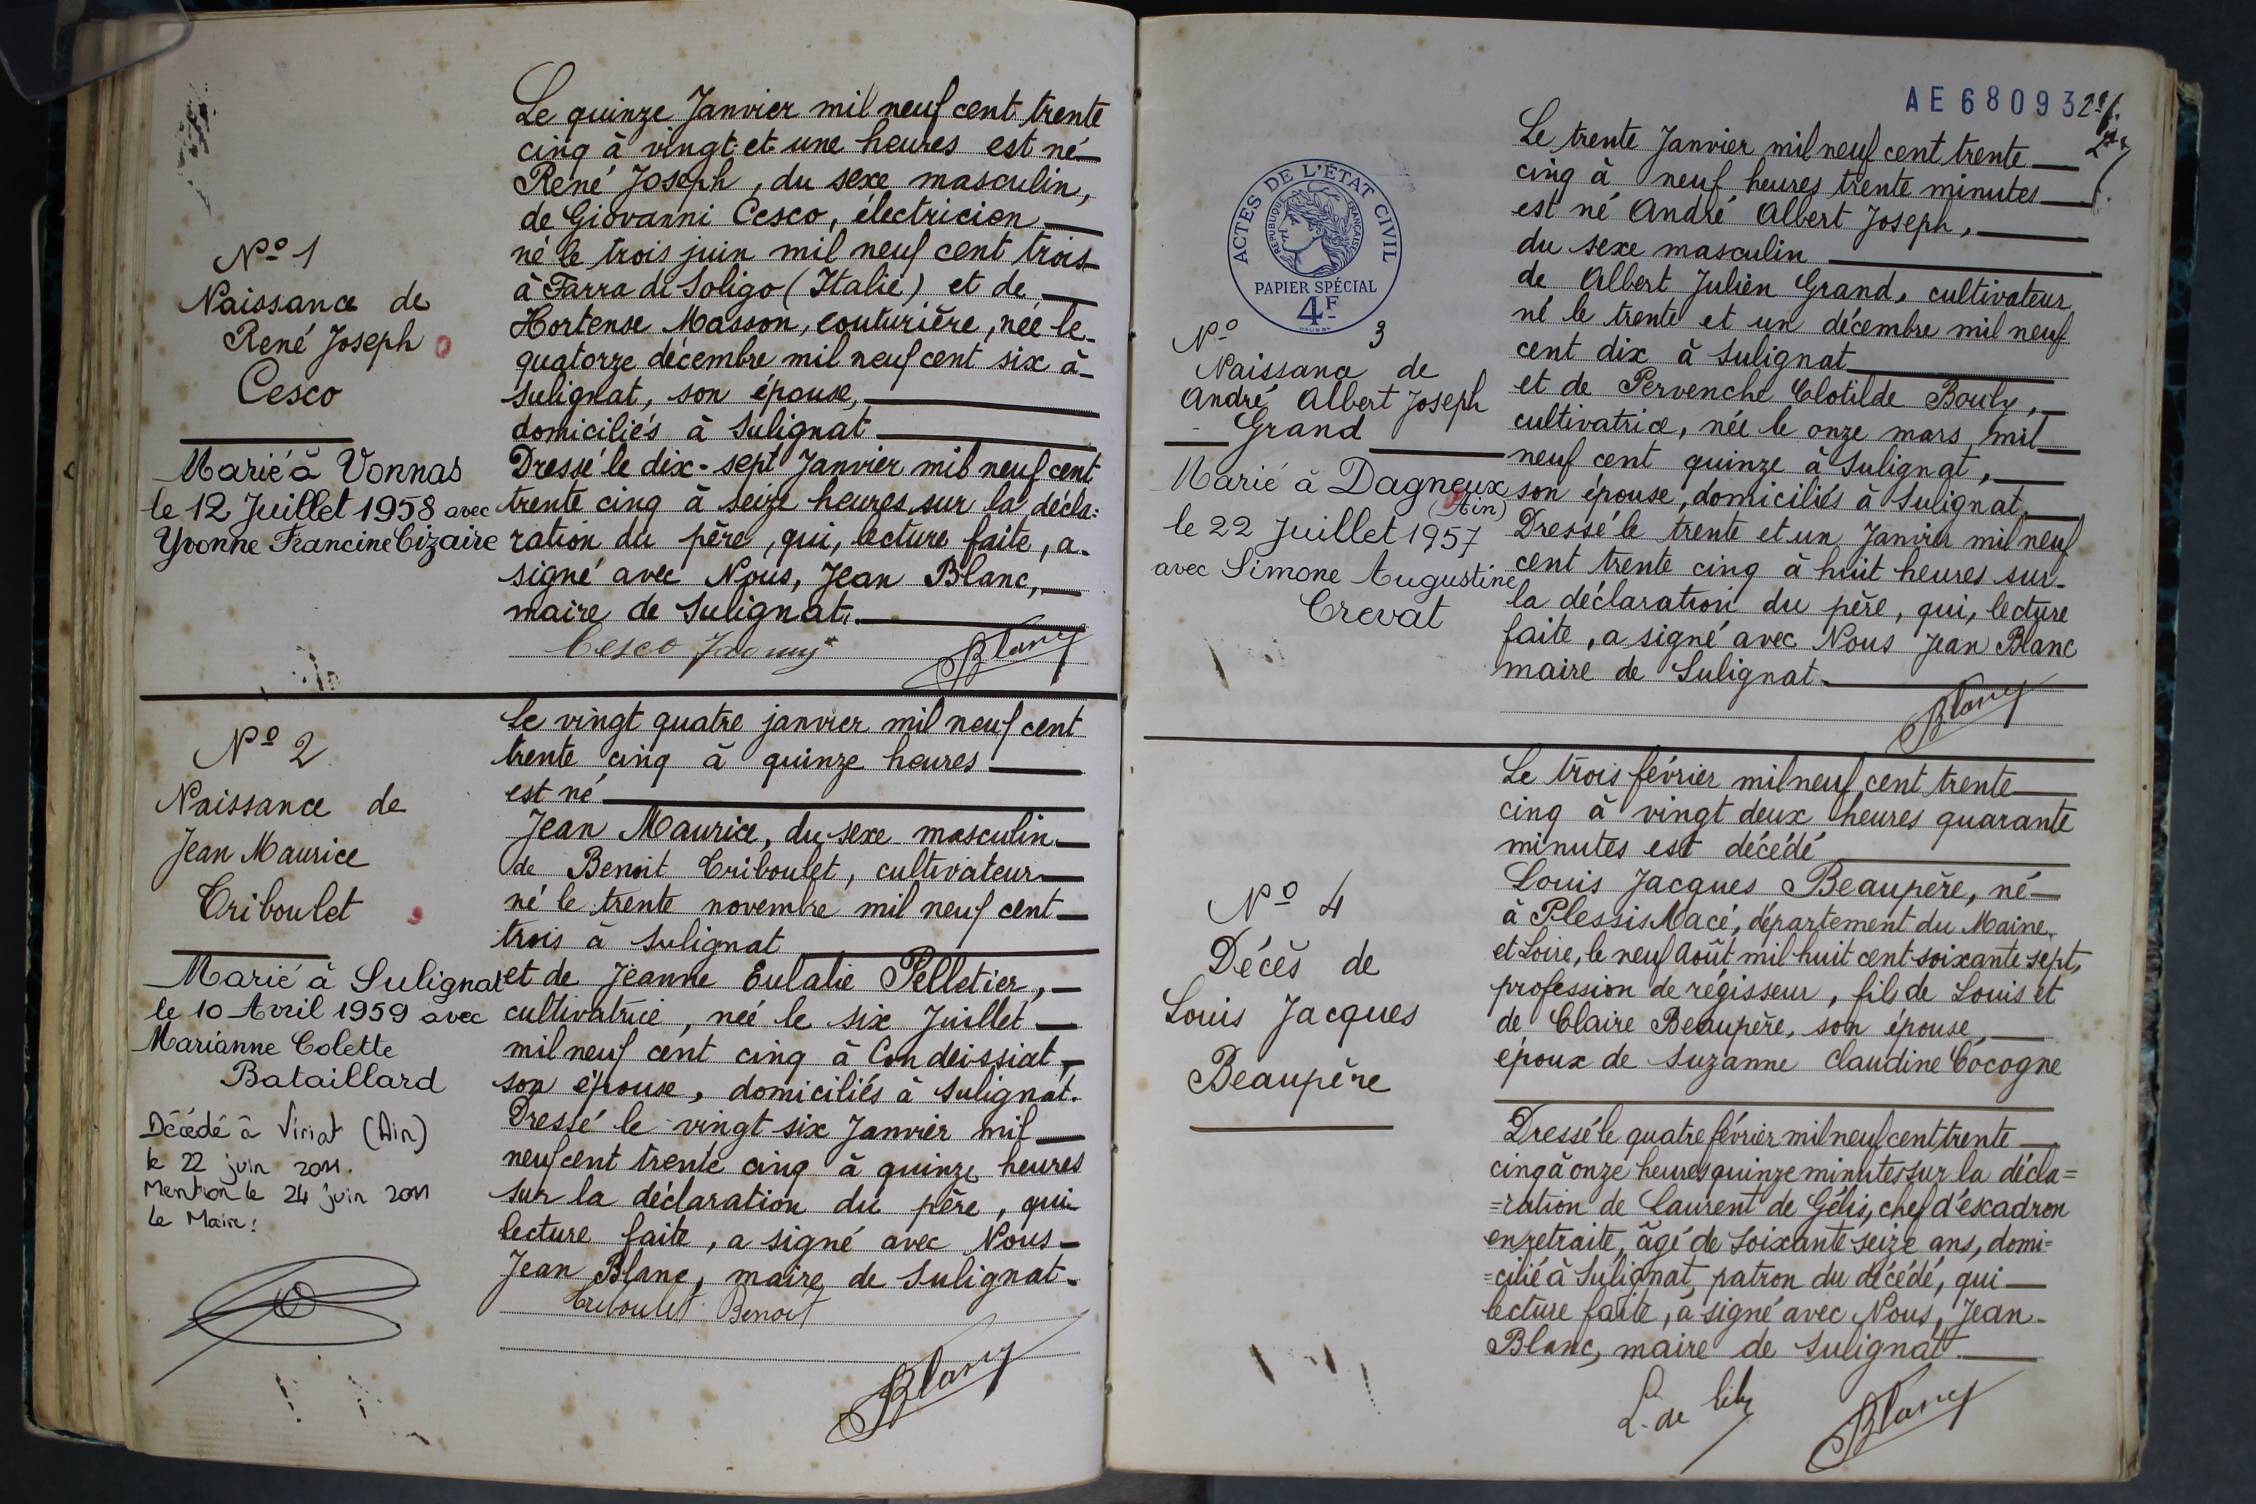 Nº 1
Naissance de
René Joseph
Cesco
Marié à Vonnas
le 12 Juillet 1958 avec
Yvonne Francine Cizaire
Le quinze Janvier mil neuf cent trente
cinq à vingt et une heures est né
René Joseph, du sexe masculin,
de Giovanni Cesco, électricien
né le trois juin mil neuf cent trois
à Farra di Soligo (Italie) et de
Hortense Masson, couturière, née le
quatorze décembre mil neuf cent six à
Sulignat, son épouse,
domiciliés à Sulignat
Dressé le dix-sept Janvier mil neuf cent
trente cinq à seize heures sur la décla=
ration du père, qui, lecture faite, a
signé avec Nous, Jean Blanc,
maire de Sulignat.
Cesco
Blanc
Nº 2
Naissance de
Jean Maurice
Triboulet
Marié à Sulignat
le 10 Avril 1959 avec
Marianne Colette
Bataillard
Décédé à Viriat (Ain)
le 22 juin 2011.
Mention le 24 juin 2011
Le Maire:
Le vingt quatre janvier mil neuf cent
trente cinq à quinze heures
est né
Jean Maurice, du sexe masculin
de Benoit Triboulet, cultivateur
né le trente novembre mil neuf cent
trois à Sulignat
et de Jeanne Eulalie Pelletier,
cultivatrice, née le six Juillet
mil neuf cent cinq à Condeissiat,
son épouse, domiciliés à Sulignat.
Dressé le vingt six Janvier mil
neuf cent trente cinq à quinze heures
sur la déclaration du père, qui
lecture faite, a signé avec Nous
Jean Blanc, maire de Sulignat.
Triboulet Benoit
Blanc
AE 68093
ACTES DE L'ÉTAT CIVIL
RÉPUBLIQUE FRANÇAISE
PAPIER SPÉCIAL
4F
Nº 3
Naissance de
André Albert Joseph
Grand
Marié à Dagneux
(Ain)
le 22 Juillet 1957
avec Simone Augustine
Crevat
Le trente Janvier mil neuf cent trente
cinq à neuf heures trente minutes
est né André Albert Joseph,
du sexe masculin
de Albert Julien Grand, cultivateur
né le trente et un décembre mil neuf
cent dix à Sulignat
et de Pervenche Clotilde Bouly,
cultivatrice, née le onze mars mil
neuf cent quinze à Sulignat,
son épouse, domiciliés à Sulignat.
Dressé le trente et un Janvier mil neuf
cent trente cinq à huit heures sur
la déclaration du père, qui, lecture
faite, a signé avec Nous Jean Blanc
maire de Sulignat.
Blanc
Nº 4
Décès de
Louis Jacques
Beaupère
Le trois février mil neuf cent trente
cinq à vingt deux heures quarante
minutes est décédé
Louis Jacques Beaupère, né
à Plessis Macé, département du Maine
et Loire, le neuf Août mil huit cent soixante sept,
profession de régisseur, fils de Louis et
de Claire Beaupère, son épouse,
époux de Suzanne Claudine Cocogne
Dressé le quatre février mil neuf cent trente
cinq à onze heures quinze minutes sur la décla=
=ration de Laurent de Gélis, chef d'escadron
en retraite, âgé de soixante seize ans, domi=
=cilié à Sulignat, patron du décédé, qui
lecture faite, a signé avec Nous, Jean
Blanc, maire de Sulignat.
L. de
Blanc